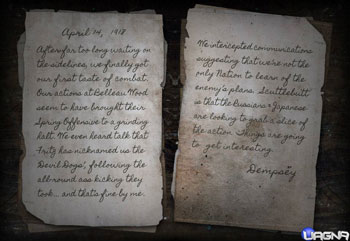 April 14, 1918
After far too long waiting on
the sidelines, we finally got
our first taste of combat.
Our actions at Belleau Wood
seem to have brought their
Spring Offensive to a grinding
halt. We even heard talk that
Fritz has nicknamed us the
'Devil Dogs', following the
all-round ass kicking they
took... and that's fine by me.
We intercepted communications
suggesting that we're not the
only Nation to learn of the
enemy's plans. Scuttlebutt
is that the Russians & Japanese
are looking to grab a slice of
the action. Things are going
to get interesting.
Dempsey
UAGNA